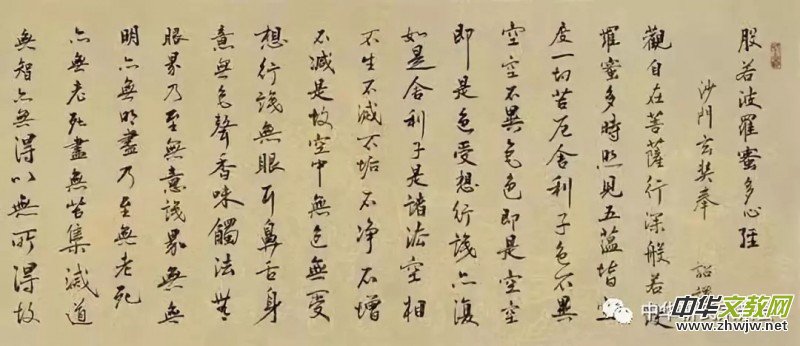 般若波羅蜜多心經
沙門玄奘奉 詔譯
觀自在菩薩行深般若波
羅蜜多時照見五蘊皆空
度一切苦厄舍利子色不異
空空不異色色即是空空
即是色受想行識亦復
如是舍利子是諸法空相
不生不滅不垢不净不增
不減是故空中無色無受
想行識無眼耳鼻舌身
意無色聲香味觸法無
眼界乃至無意識界無無
明亦無明盡乃至無老死
亦無老死盡無苦集滅道
無智亦無得以無所得故
中华文教网
www.zhwjw.net